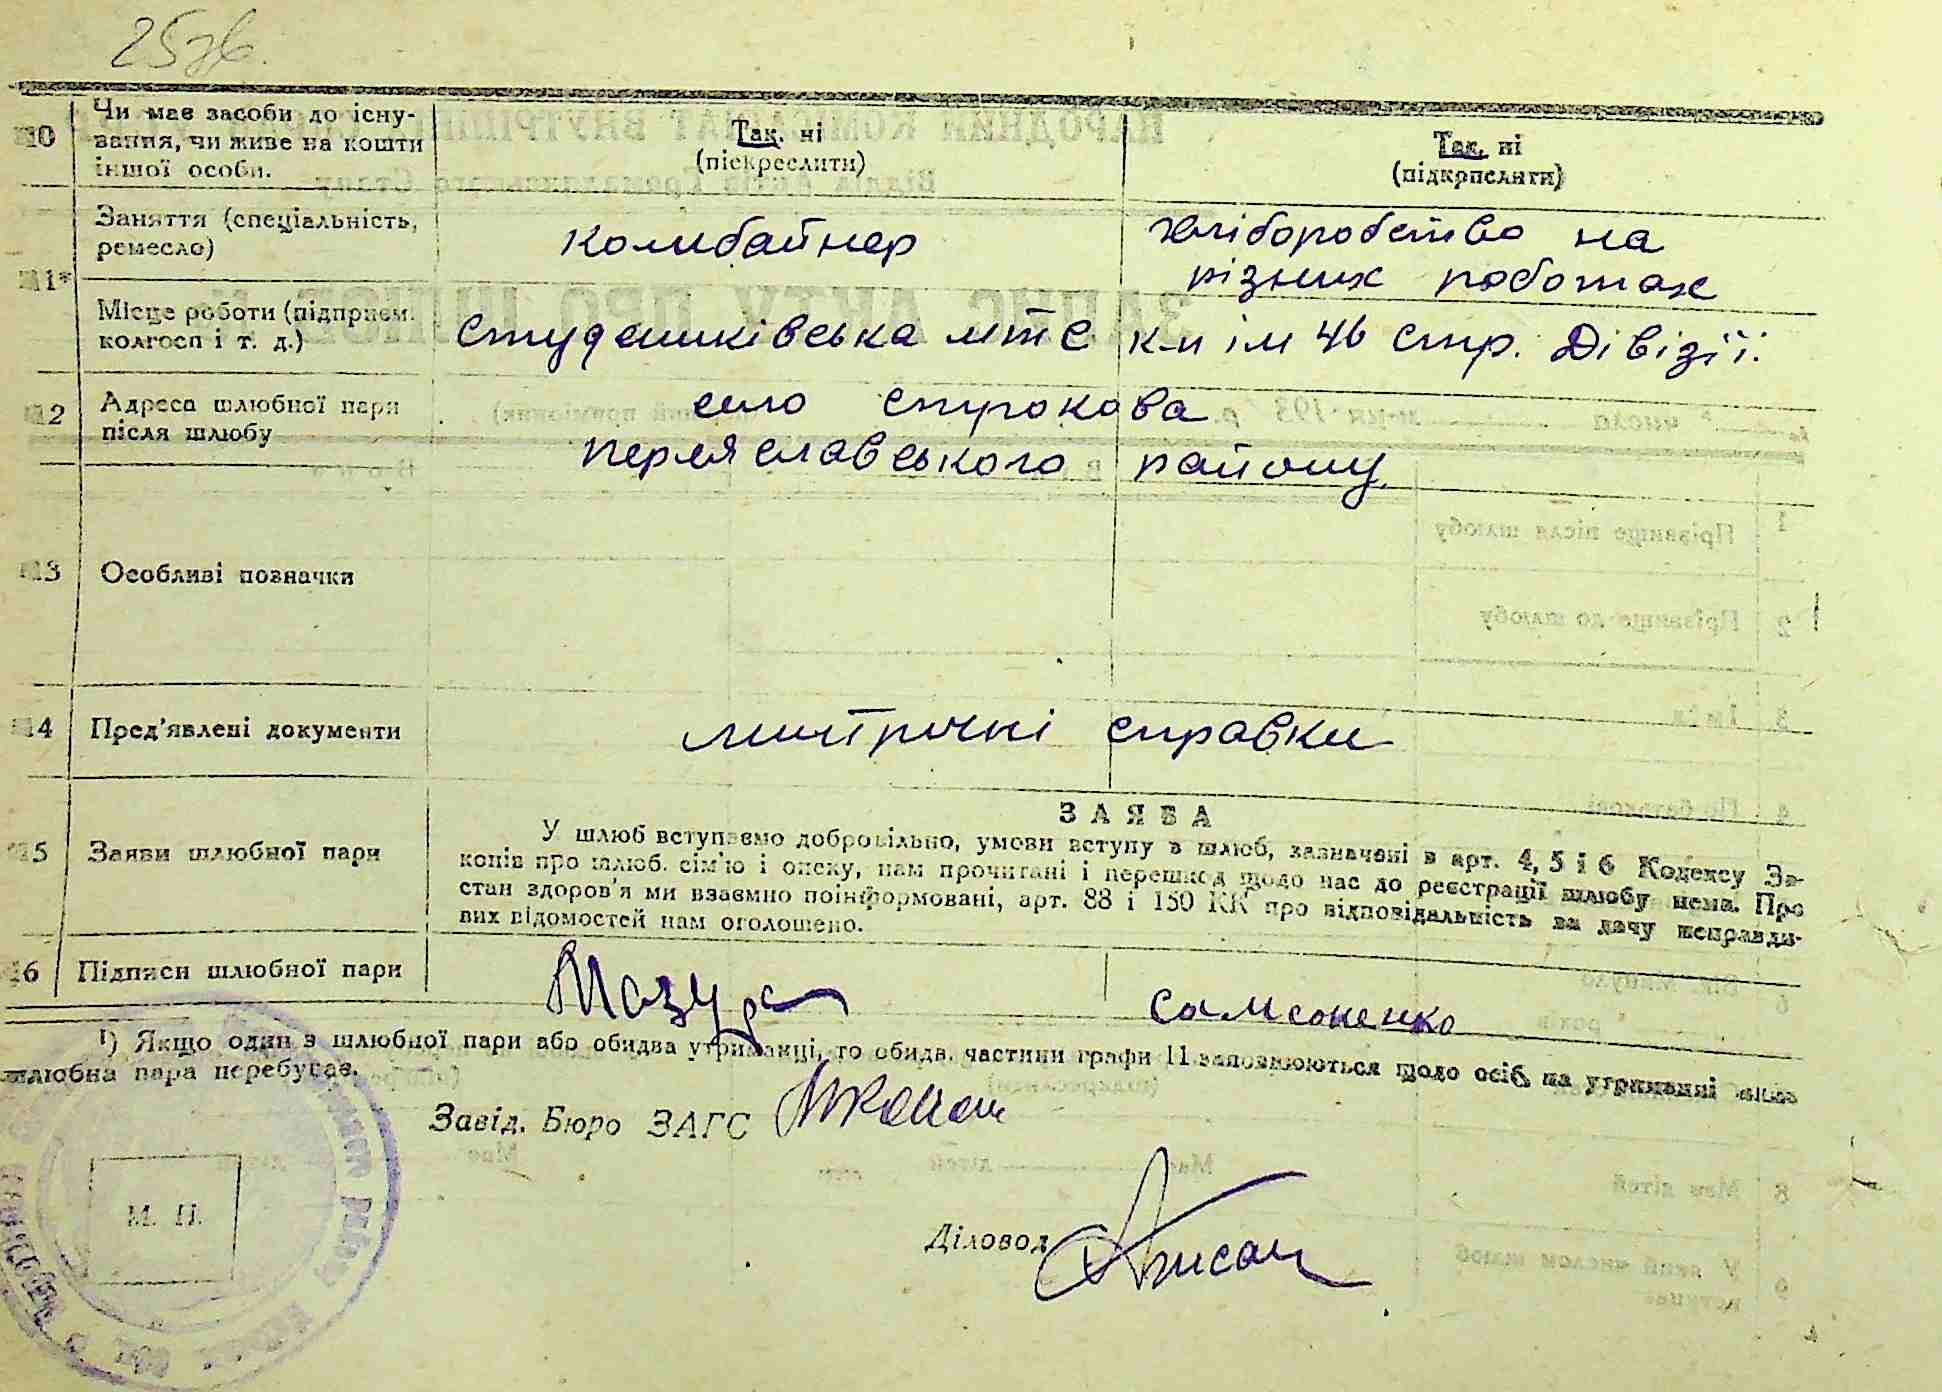 25зв.
10 Чи має засоби до існу-
вання, чи живе на кошти
іншої особи.
Так, ні
(піекреслити)
Так, ні
(підкреслити)
11* Заняття (спеціальність,
ремесло)
комбайнер
хліборобство на
різних роботах
Місце роботи (підприєм.
колгосп і т. д.)
студениківська мтс
к-п ім 46 стр. Дівізії.
12 Адреса шлюбної пари
після шлюбу
село строкова
переяславського району.
13 Особливі позначки
14 Пред'явлені документи
митричні справки
15 Заяви шлюбної пари
ЗАЯВА
У шлюб вступаємо добровільно, умови вступу в шлюб, зазначені в арт. 4, 5 і 6 Кодексу За-
конів про шлюб, сім'ю і опеку, нам прочитані і перешкод щодо нас до реєстрації шлюбу нема. Про
стан здоров'я ми взаємно поінформовані, арт. 88 і 150 КК про відповідальність за дачу неправди-
вих відомостей нам оголошено.
16 Підписи шлюбної пари
Мазур
самсоненко
1) Якщо один з шлюбної пари або обидва утриманці, то обидв. частини графи 11 заповнюються щодо осіб, на утриманні яких
шлюбна пара перебуває.
Завід. Бюро ЗАГС
Діловод
М. П.